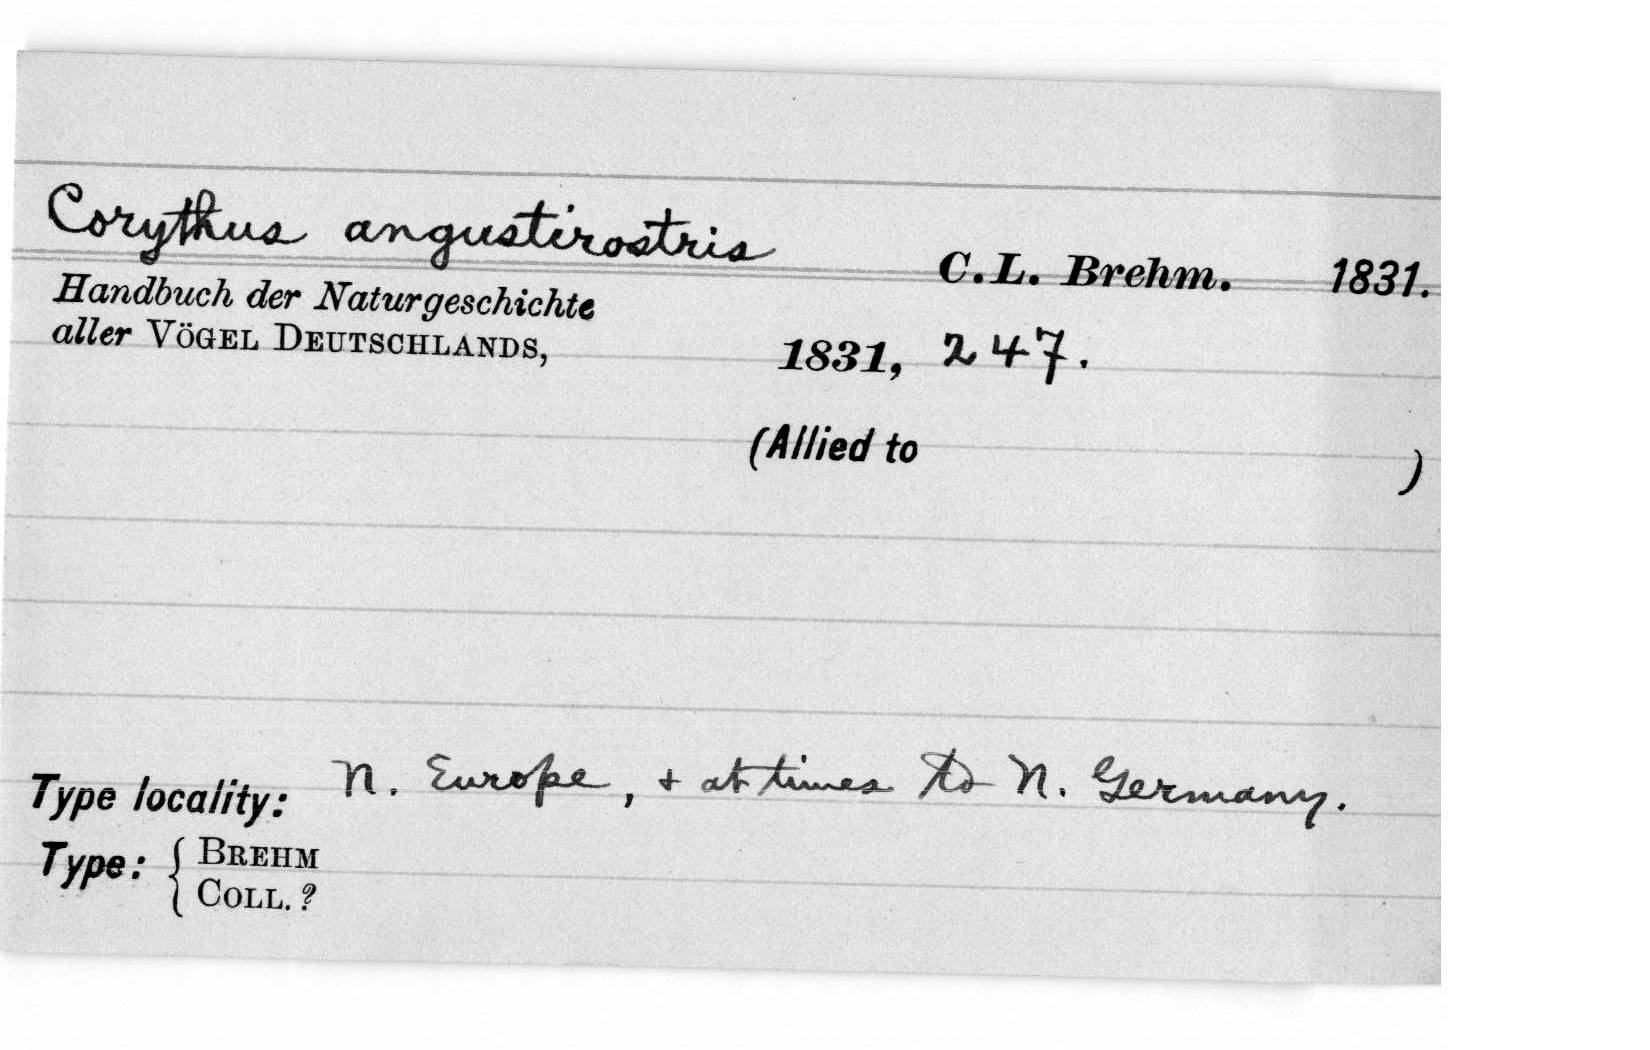 Corythus angustirostris C.L. Brehm. 1831.
Handbuch der Naturgeschichte
aller VÖGEL DEUTSCHLANDS, 1831, 247.
(Allied to )
Type locality: N. Europe, + at times to N. Germany.
Type: { BREHM
COLL. ?